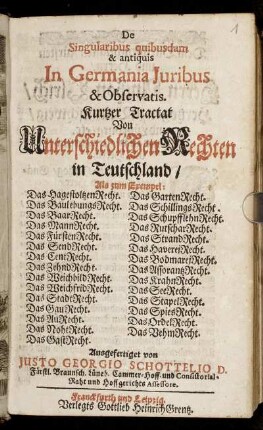 1
De
Singularibus quibusdam
& antiquis
In Germania Juribus
& Observatis.
Kurtzer Tractat
Von
Unterschiedlichen Rechten
in Teutschland /
Als zum Exempel:
Das HagestoltzenRecht.
Das BaulebungsRecht.
Das BaarRecht.
Das MannRecht.
Das FürstenRecht.
Das SendRecht.
Das CentRecht.
Das ZehndRecht.
Das WeichbildRecht.
Das WeichfridRecht.
Das StadtRecht.
Das GauRecht.
Das AuRecht.
Das NohtRecht.
Das GastRecht.
Das GartenRecht.
Das SchillingsRecht.
Das SchupfflehnRecht.
Das RutscharRecht.
Das StrandRecht.
Das HavereiRecht.
Das BodmereiRecht.
Das AssoranzRecht.
Das KrahnRecht.
Das SeeRecht.
Das StapelRecht.
Das SpiesRecht.
Das OrdelRecht.
Das VehmRecht.
Ausgefertiget von
JUSTO GEORGIO SCHOTTELIO D.
Fürstl. Braunsch. Lüneb. Cammer-Hoff- und Consistorial-
Raht und Hoffgerichts Assessore.
Franckfurth und Leipzig.
Verlegts Gottlieb Heinrich Grentz.